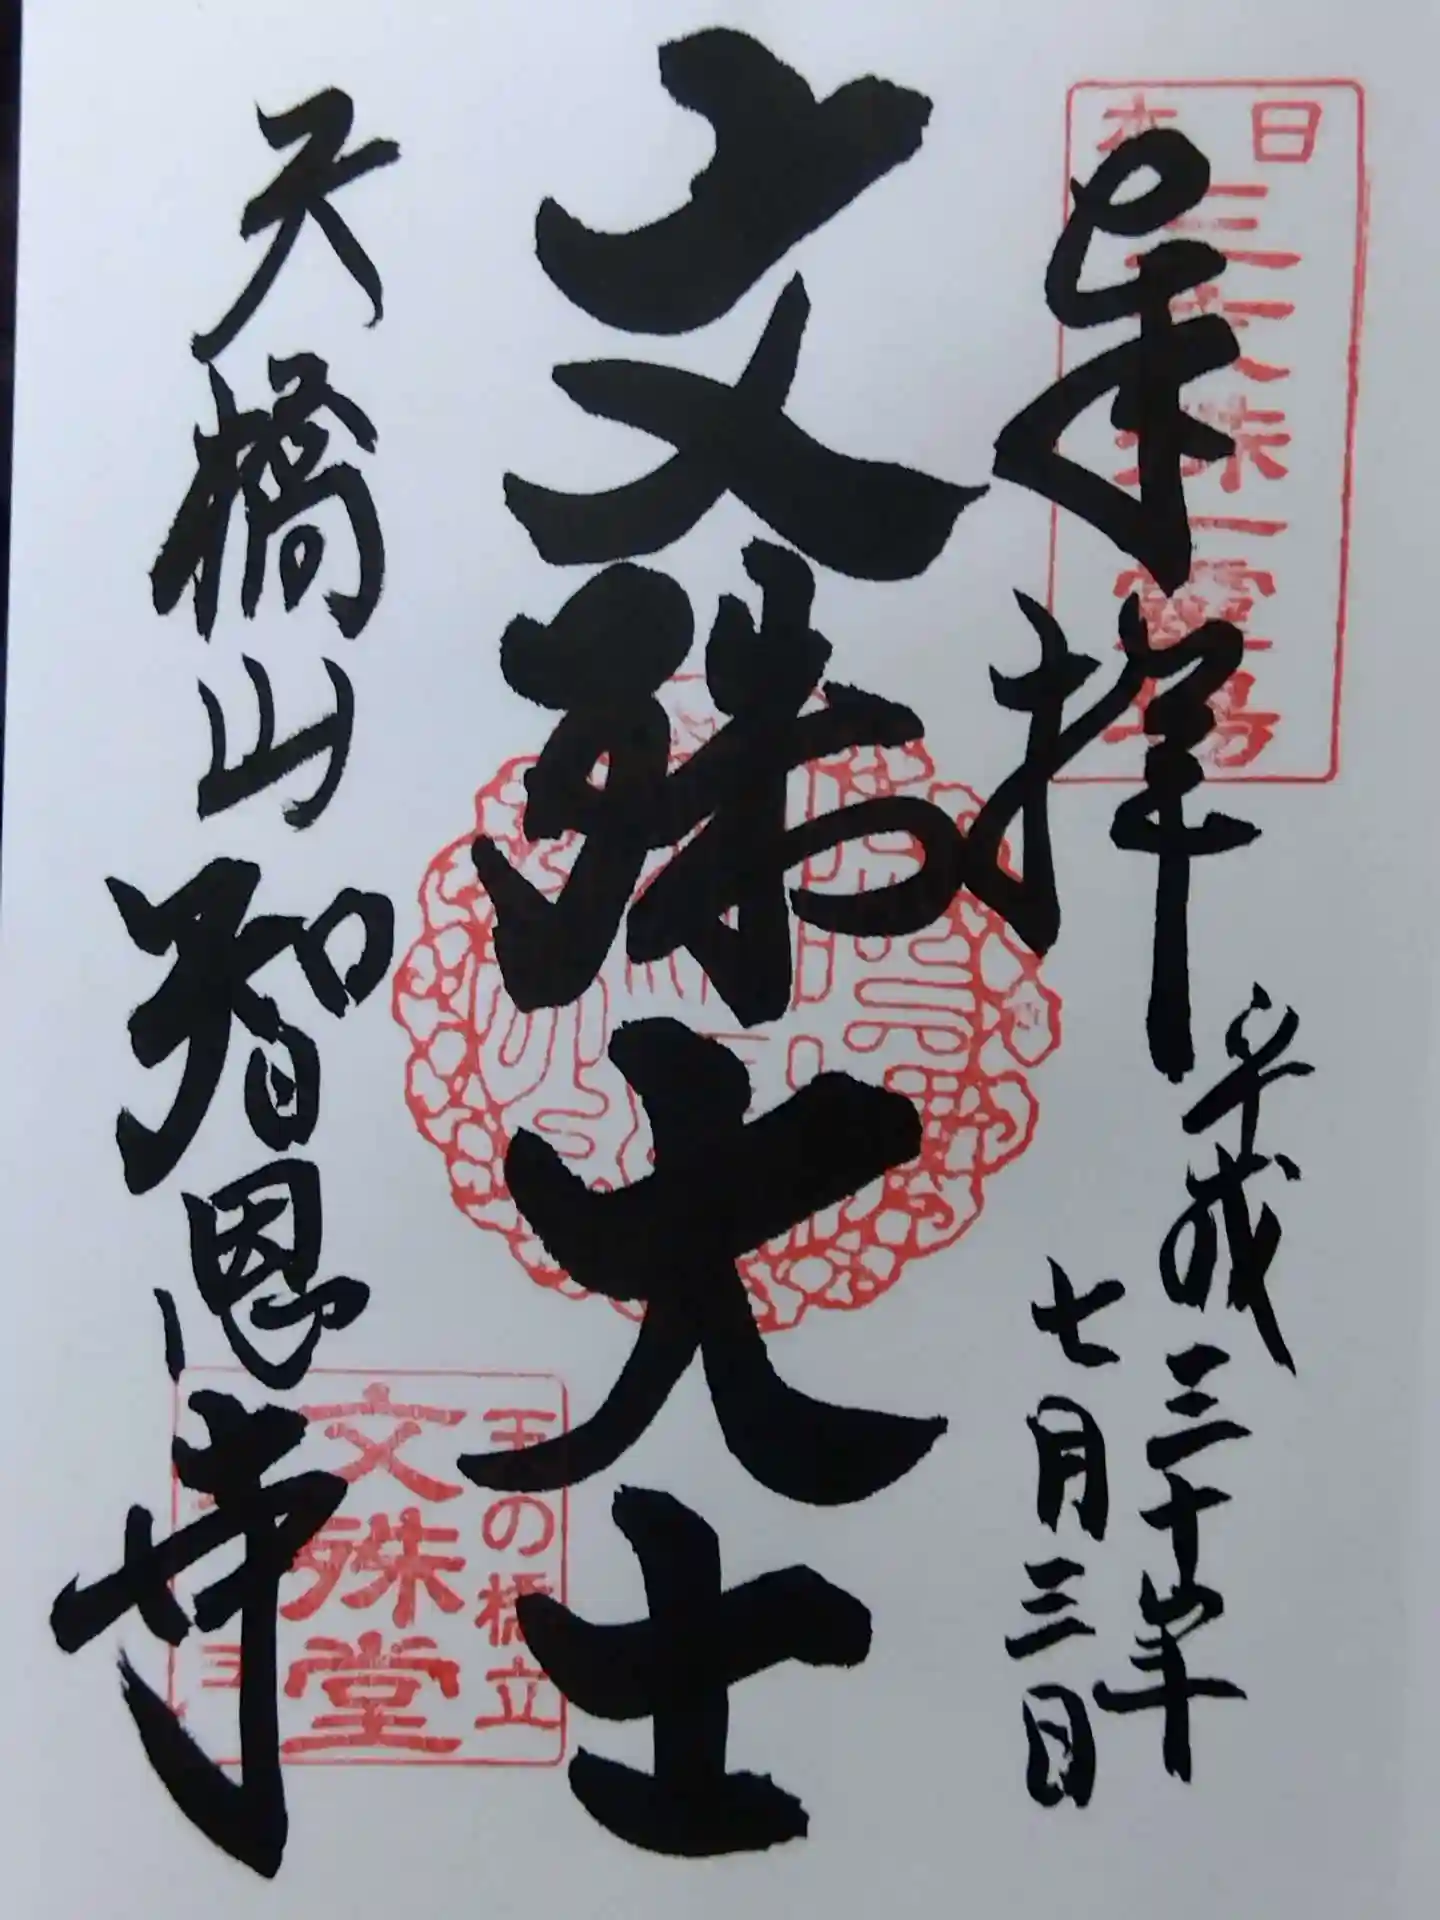 奉拝
平成三十年
七月三日
文殊大士
天橋山智恩寺
日本三文殊一霊場
天の橋立
文殊堂